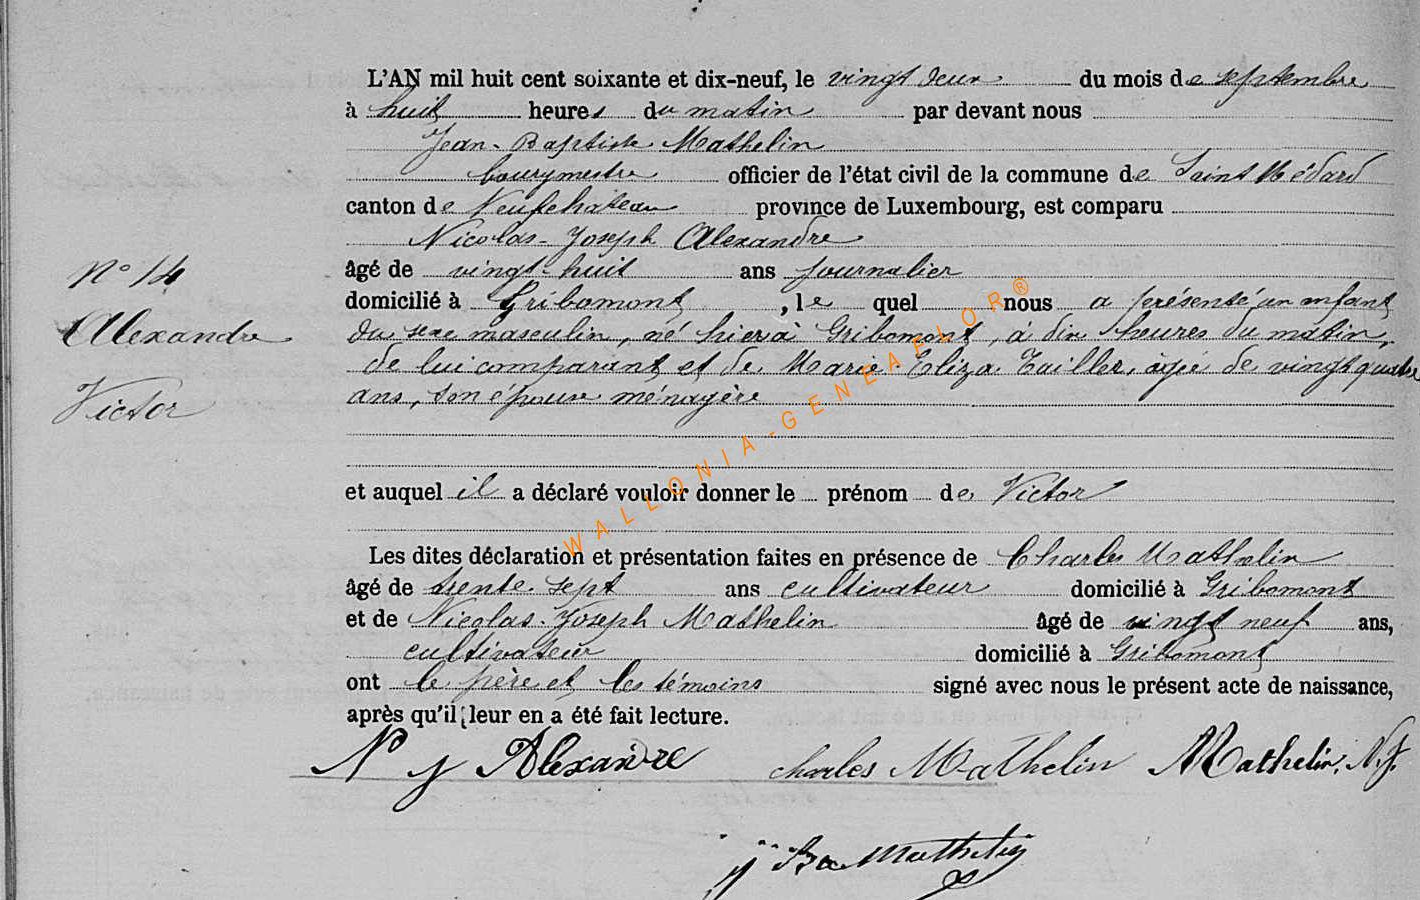 L'AN mil huit cent soixante et dix-neuf, le vingt deux du mois de septembre
à huit heures du matin par devant nous
Jean-Baptiste Mathelin
bourgmestre officier de l'état civil de la commune de Saint Médard
canton de Neufchateau province de Luxembourg, est comparu
Nicolas-Joseph Alexandre
âgé de vingt-huit ans journalier
domicilié à Gribomont, lequel nous a présenté un enfant
du sexe masculin, né hier à Gribomont, à dix heures du matin,
de lui comparant et de Marie-Eliza Tailler, agée de vingt quatre
ans, son épouse ménagère
N° 14
Alexandre
Victor
et auquel il a déclaré vouloir donner le prénom de Victor
Les dites déclaration et présentation faites en présence de Charles Mathelin
âgé de trente-sept ans cultivateur domicilié à Gribomont
et de Nicolas-Joseph Mathelin âgé de vingt neuf ans,
cultivateur domicilié à Gribomont
ont le père et les témoins signé avec nous le présent acte de naissance,
après qu'il leur en a été fait lecture.
N J Alexandre charles Mathelin Mathelin, N.J.
J Bte Mathelin
WALLONIA-GENEAFLOR®